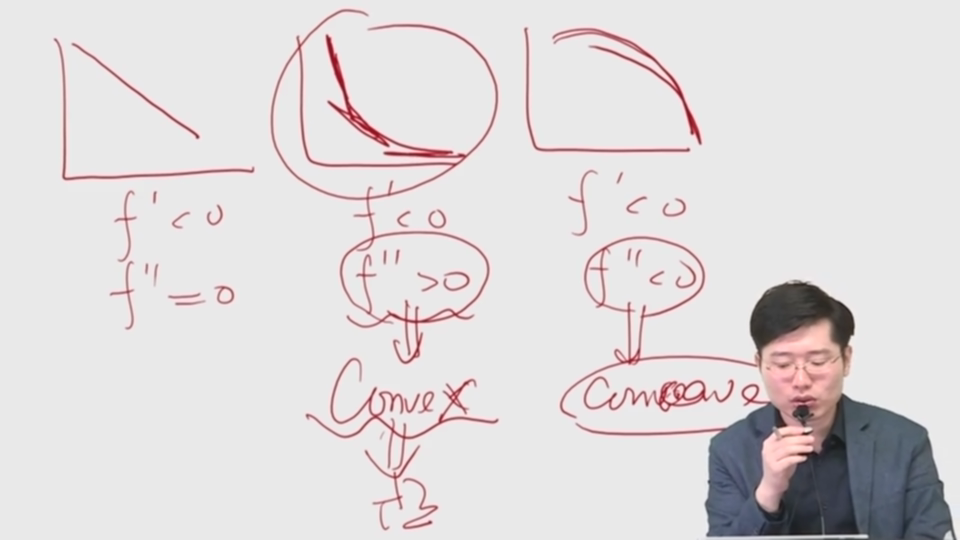 f' < 0
f'' = 0
f' < 0
f'' > 0
Convex
f' < 0
f'' < 0
Concave